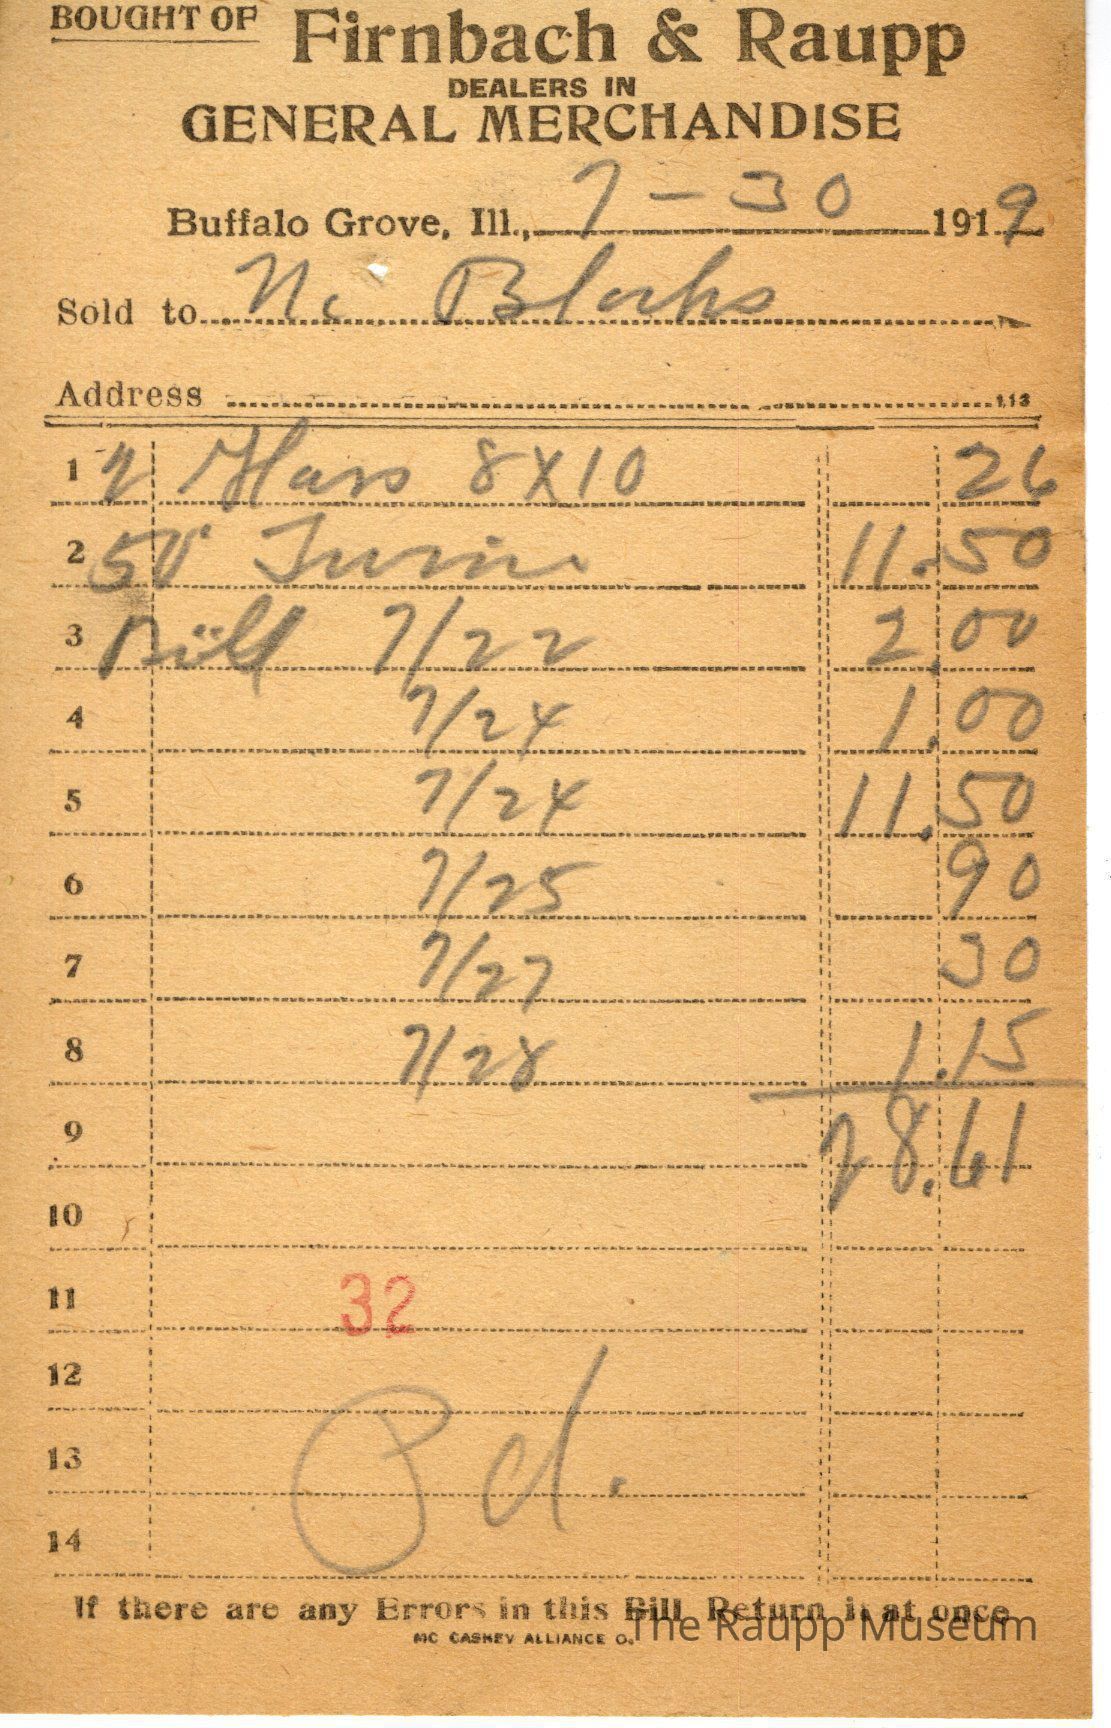 BOUGHT OF Firnbach & Raupp
DEALERS IN
GENERAL MERCHANDISE
Buffalo Grove, Ill., 7-30 1919
Sold to N. Blocks
Address 113
1 2 Glass 8X10 26
2 50 Twine 11.50
3 Bill 7/22 2.00
4 7/24 1.00
5 7/24 11.50
6 7/25 90
7 7/27 30
8 7/28 1.15
9 28.61
10
11 32
12
13 Pd.
14
If there are any Errors in this Bill Return it at once
MC CASKEY ALLIANCE O.
The Raupp Museum